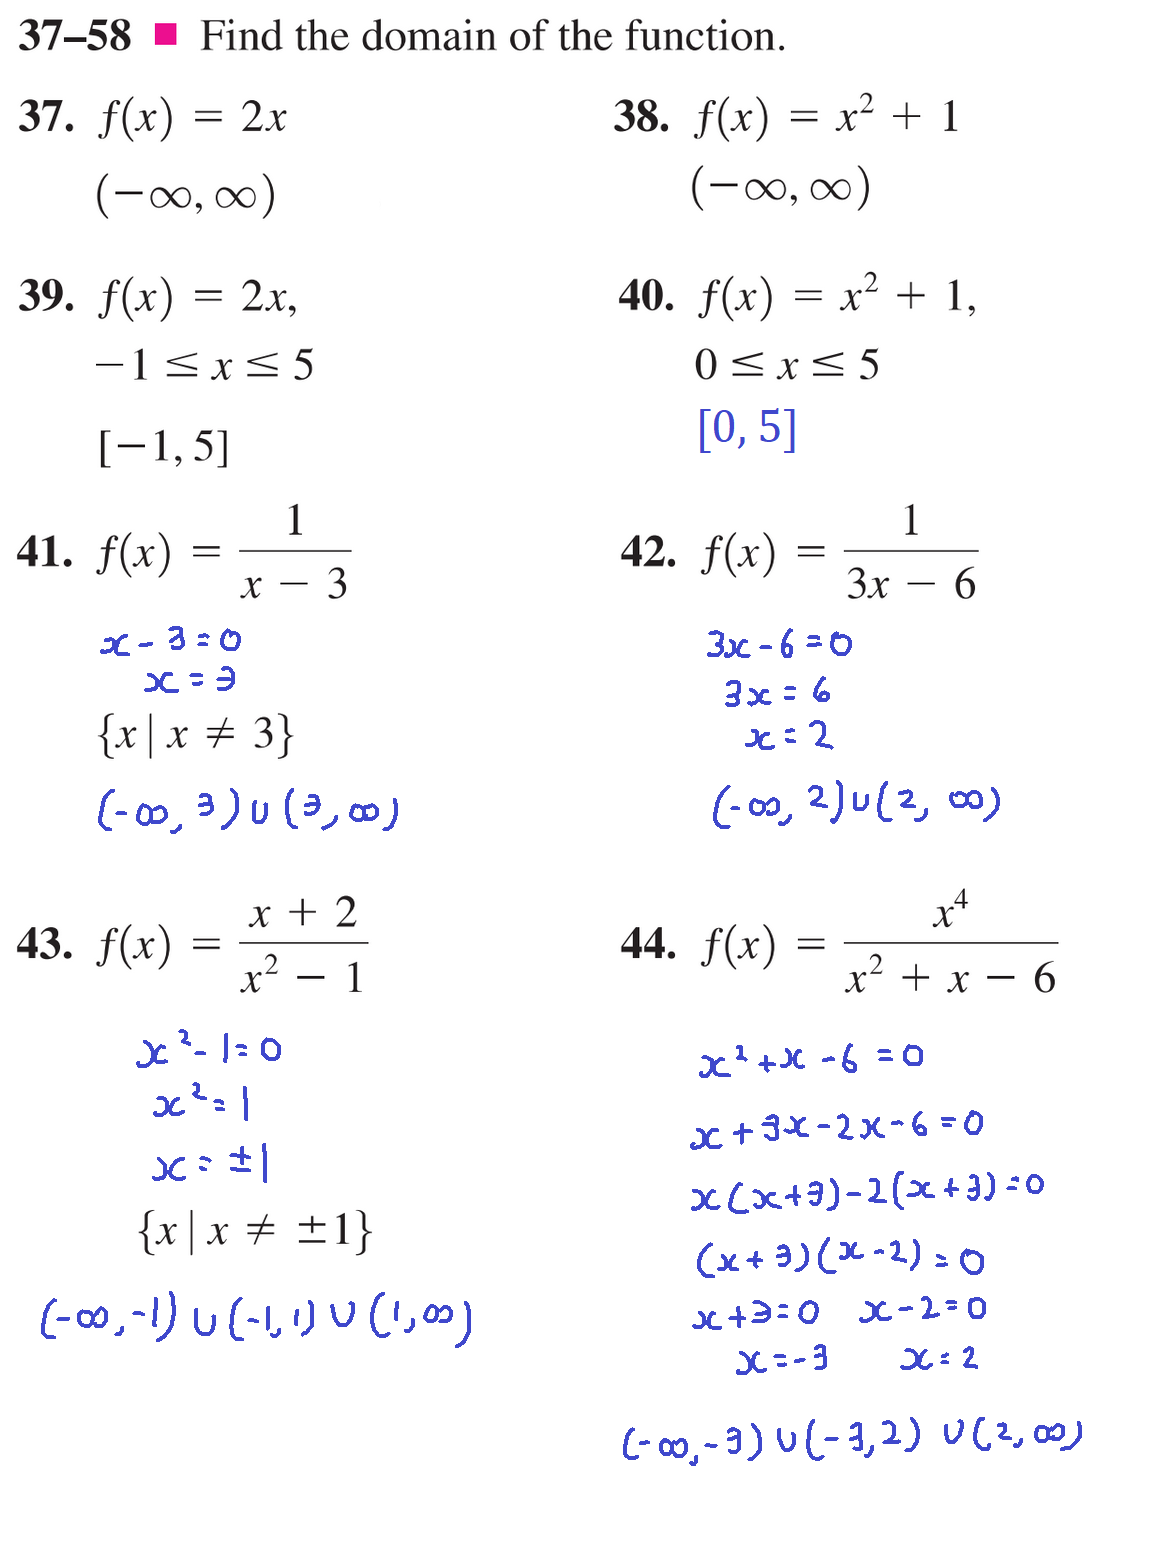 37–58 ■ Find the domain of the function.
37. f(x) = 2x
(−∞, ∞)
38. f(x) = x² + 1
(−∞, ∞)
39. f(x) = 2x,
−1 ≤ x ≤ 5
[−1, 5]
40. f(x) = x² + 1,
0 ≤ x ≤ 5
[0, 5]
41. f(x) = 1/(x − 3)
x - 3 = 0
x = 3
{x | x ≠ 3}
(-∞, 3) ∪ (3, ∞)
42. f(x) = 1/(3x − 6)
3x - 6 = 0
3x = 6
x = 2
(-∞, 2) ∪ (2, ∞)
43. f(x) = (x + 2)/(x² − 1)
x² - 1 = 0
x² = 1
x = ±1
{x | x ≠ ±1}
(-∞, -1) ∪ (-1, 1) ∪ (1, ∞)
44. f(x) = x⁴/(x² + x − 6)
x² + x - 6 = 0
x + 3x - 2x - 6 = 0
x(x+3) - 2(x+3) = 0
(x+3)(x-2) = 0
x+3 = 0 x-2 = 0
x = -3 x = 2
(-∞, -3) ∪ (-3, 2) ∪ (2, ∞)